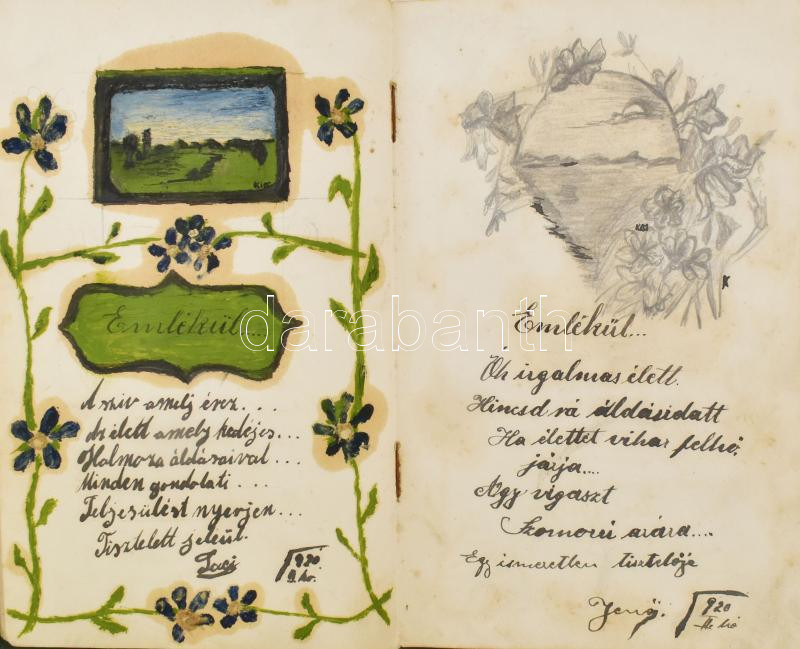 Kis
Emlékül...
A sziv amelj érez....
Az élett amely kedéjes...
Halmoza áldásaival...
Minden gondolati...
Teljesülést nyerjen...
Tisztelett jeléül.
920
Kis
K
Emlékül...
Óh irgalmas élett.
Hincsd rá áldásidatt
Ha élettet vihar felhő.
járja....
Agy vigaszt
Szomorú arára....
Egy ismeretlen tisztelője
Jenő.
920
darabanth